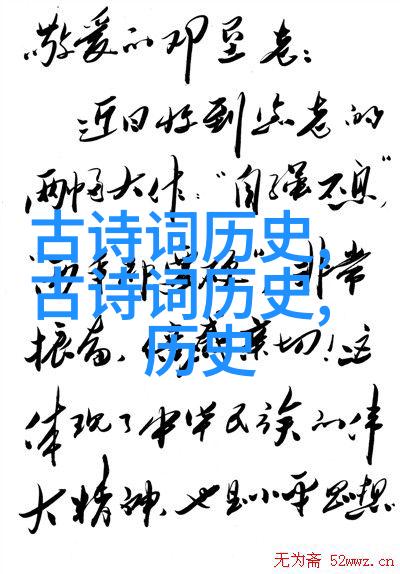 敬爱的邓垦老：
近日收到您老的
两幅大作："自强不息"，
古诗词历史,
古诗词历史,
历史
非常
振奋，倍感亲切！这
体现了中华民族的伟
大精神，也是小平思想
无为斋 52wwz.cn